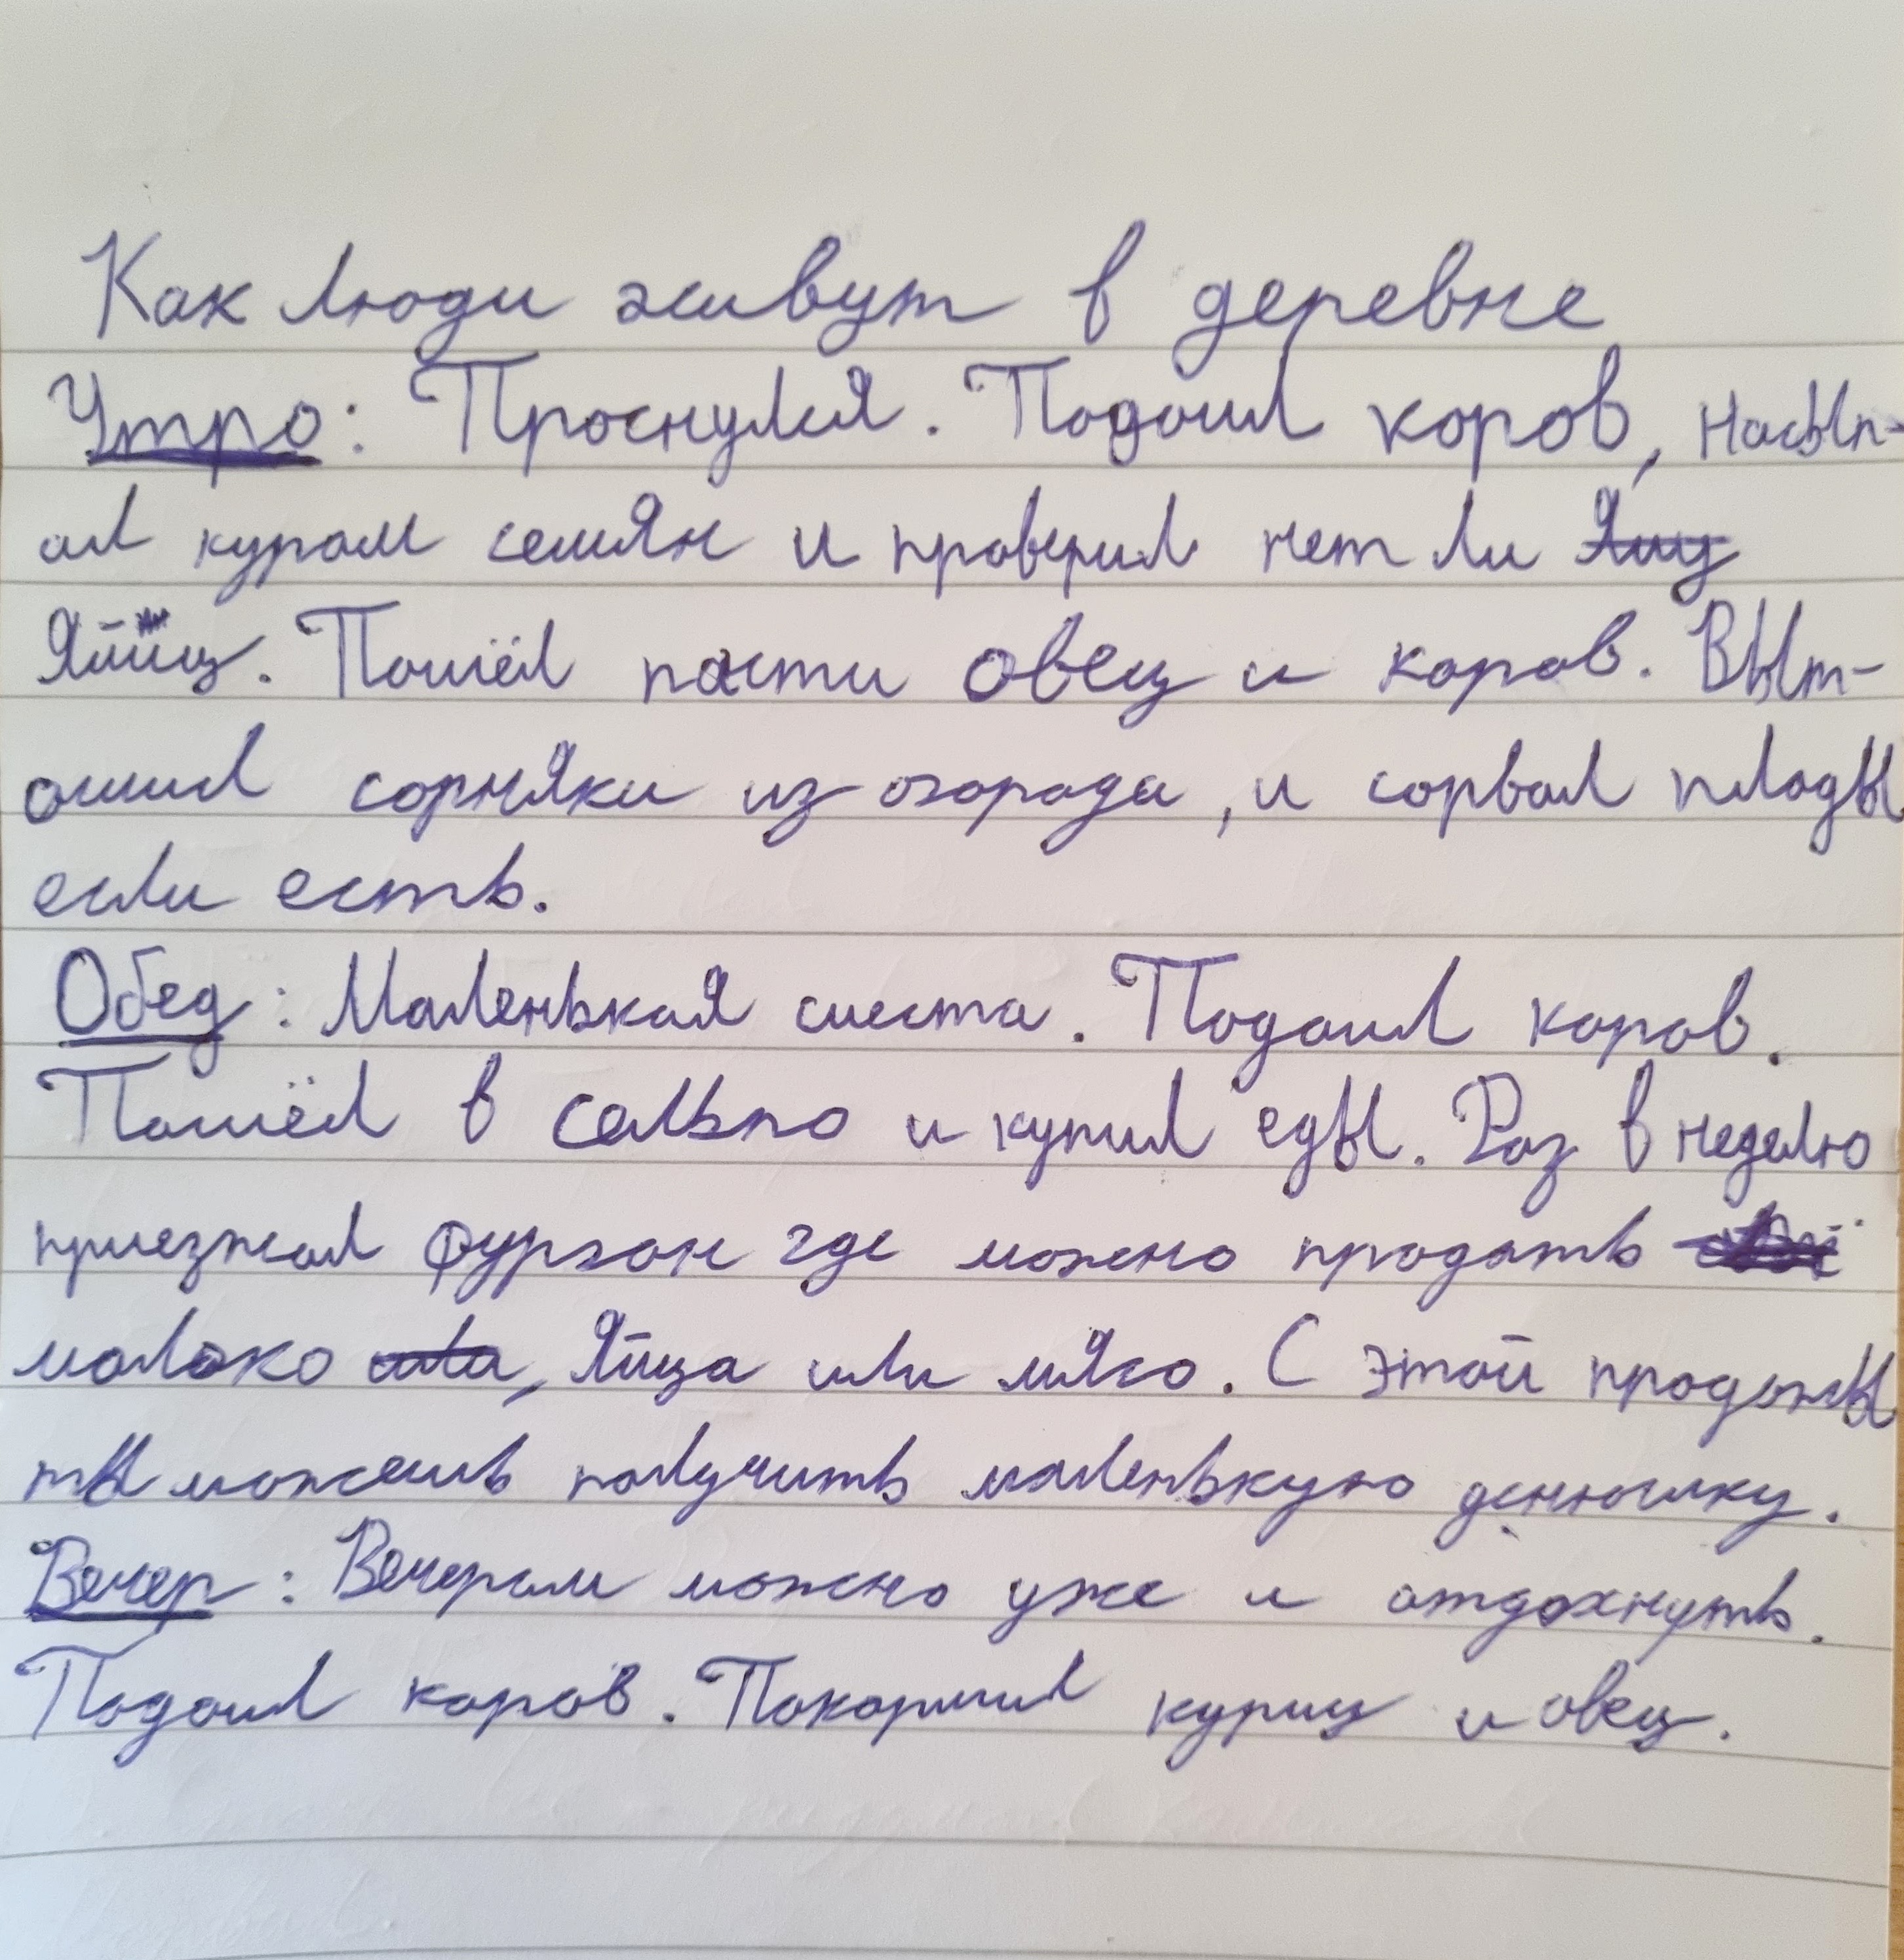 Как люди живут в деревне
Утро: Проснулся. Подоил коров, насып-
ал курам семян и проверил нет ли
Яйиц. Пошёл пасти овец и коров. Выт-
ошил сорняки из огорода, и сорвал плоды
если есть.
Обед: Маленькая сиеста. Подоил коров.
Пошёл в сельпо и купил еды. Раз в неделю
приезжал фургон где можно продать
молоко, яйца или мясо. С этой продажы
ты можешь получить маленькую денюшку.
Вечер: Вечером можно уже и отдохнуть.
Подоил коров. Покормил куриц и овец.